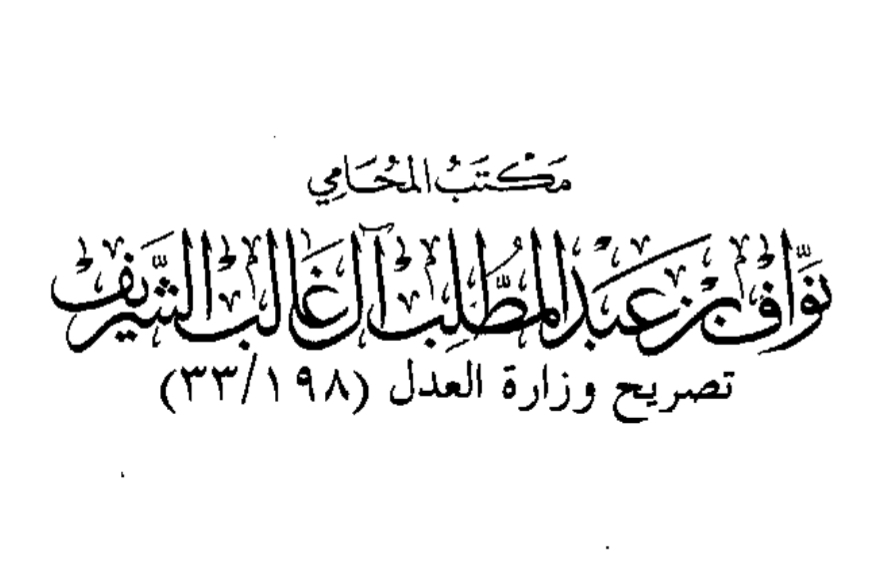 مَكتَبُ المُحَامِي
نوَّاف بن عَبْد المُطَّلِب آل غَالب الشَّريف
تصريح وزارة العدل (٣٣/١٩٨)